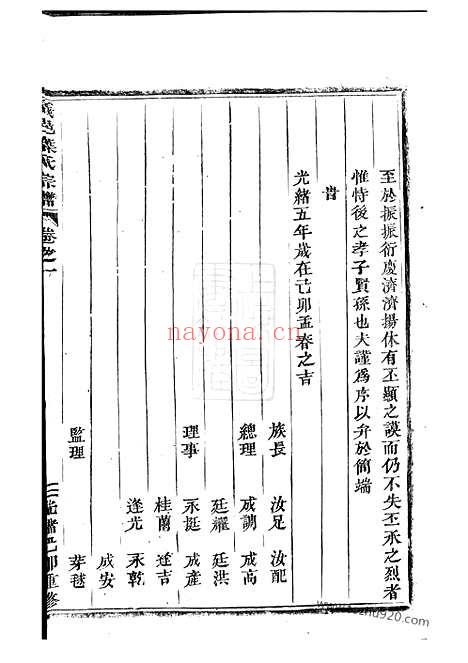 至於振振衍慶濟濟揚休有丕顯之謨而仍不失丕承之烈者
惟恃後之孝子賢孫也夫謹為序以弁於簡端
旹
光緒五年歲在己卯孟春之吉
族長 汝足 汝配
總理 成調 成高
廷耀 廷洪
理事 永挺 成產
桂蘭 逢吉
逢光 永乾
成安
監理 芽毬
義邑葉氏宗譜 卷之一
光緒己卯重修
nayona.cn